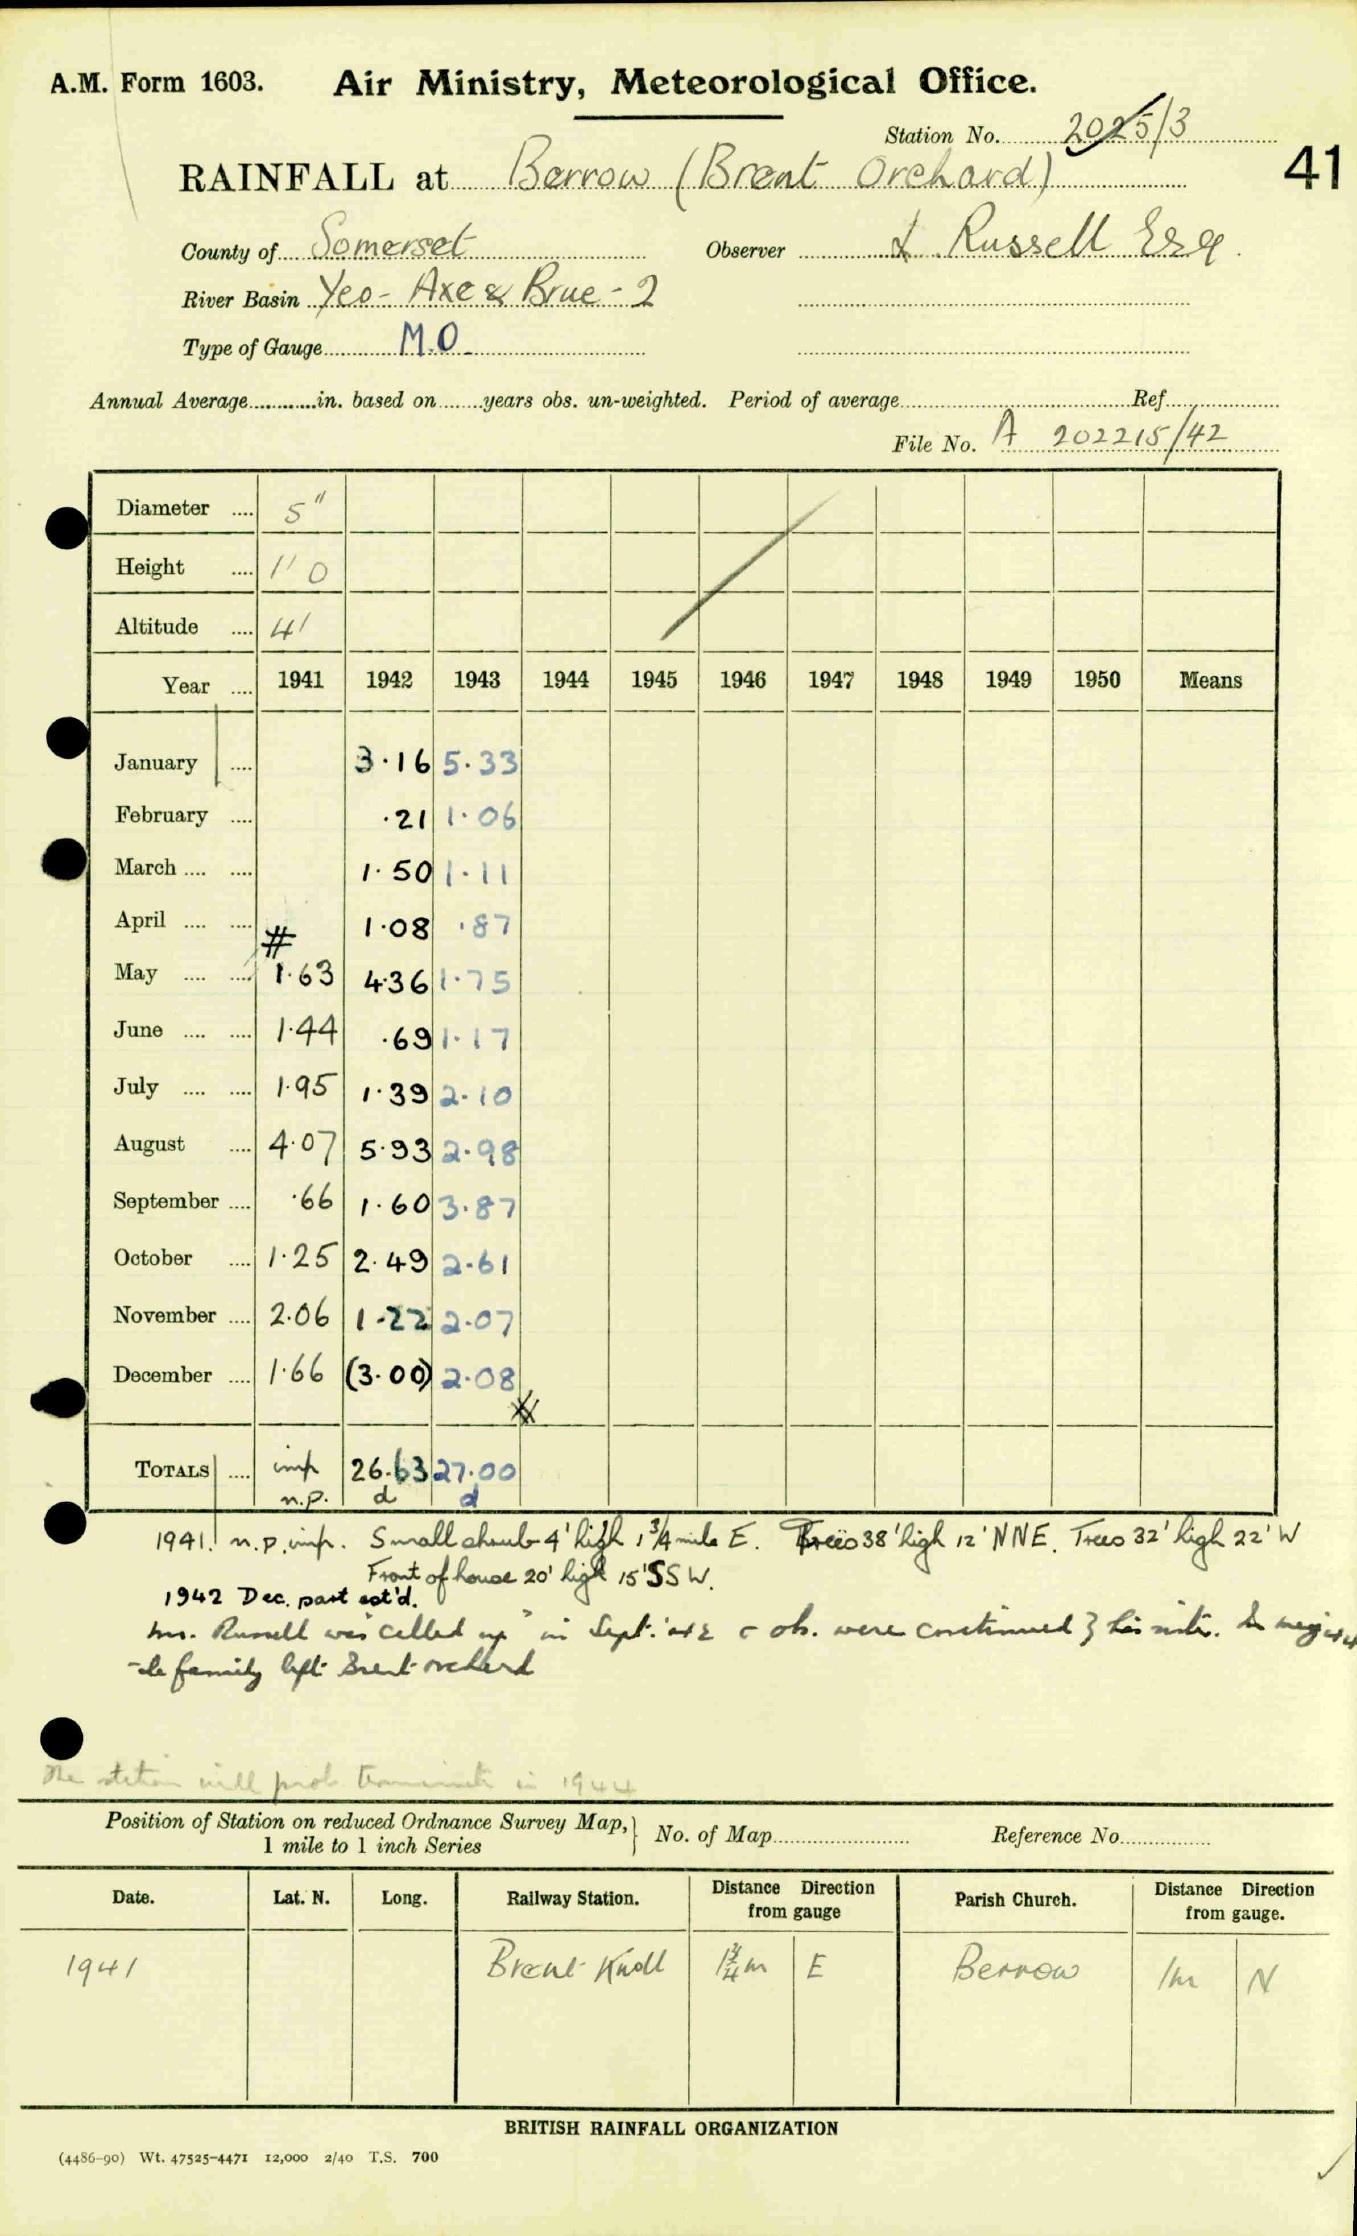 A.M. Form 1603. Air Ministry, Meteorological Office.
Station No. 2025/3
41
RAINFALL at Berrow (Brent Orchard)
County of Somerset Observer L Russell Esq.
River Basin Yeo - Axe & Brue - 2
Type of Gauge M.O.
Annual Average in. based on years obs. un-weighted. Period of average Ref.
File No. A 202215/42
Diameter .... 5"
Height .... 1' 0
Altitude .... 41
Year .... 1941 1942 1943 1944 1945 1946 1947 1948 1949 1950 Means
January .... 3.16 5.33
February .... .21 1.06
March .... .... 1.50 1.11
April .... .... 1.08 .87
#
May .... .... 1.63 4.36 1.75
June .... .... 1.44 .69 1.17
July .... .... 1.95 1.39 2.10
August .... 4.07 5.93 2.98
September .... .66 1.60 3.87
October .... 1.25 2.49 2.61
November .... 2.06 1.22 2.07
December .... 1.66 (3.00) 2.08
TOTALS .... imp 26.63 27.00
n.p. d d
1941. n.p. imp. Small shrub 4' high 1 3/4 mile E. Trees 38' high 12' NNE. Trees 32' high 22' W
Front of house 20' high 15' SSW.
1942 Dec. part est'd.
Mr. Russell was "called up" in Sept. '42 & obs. were continued by his sister. In
family left Brent orchard
The station will prob. terminate in 1944
Position of Station on reduced Ordnance Survey Map, } No. of Map Reference No.
1 mile to 1 inch Series
Date. Lat. N. Long. Railway Station. Distance Direction from gauge Parish Church. Distance Direction from gauge.
1941 Brent Knoll 1¾m E Berrow 1m N
BRITISH RAINFALL ORGANIZATION
(4486-90) Wt. 47525-4471 12,000 2/40 T.S. 700